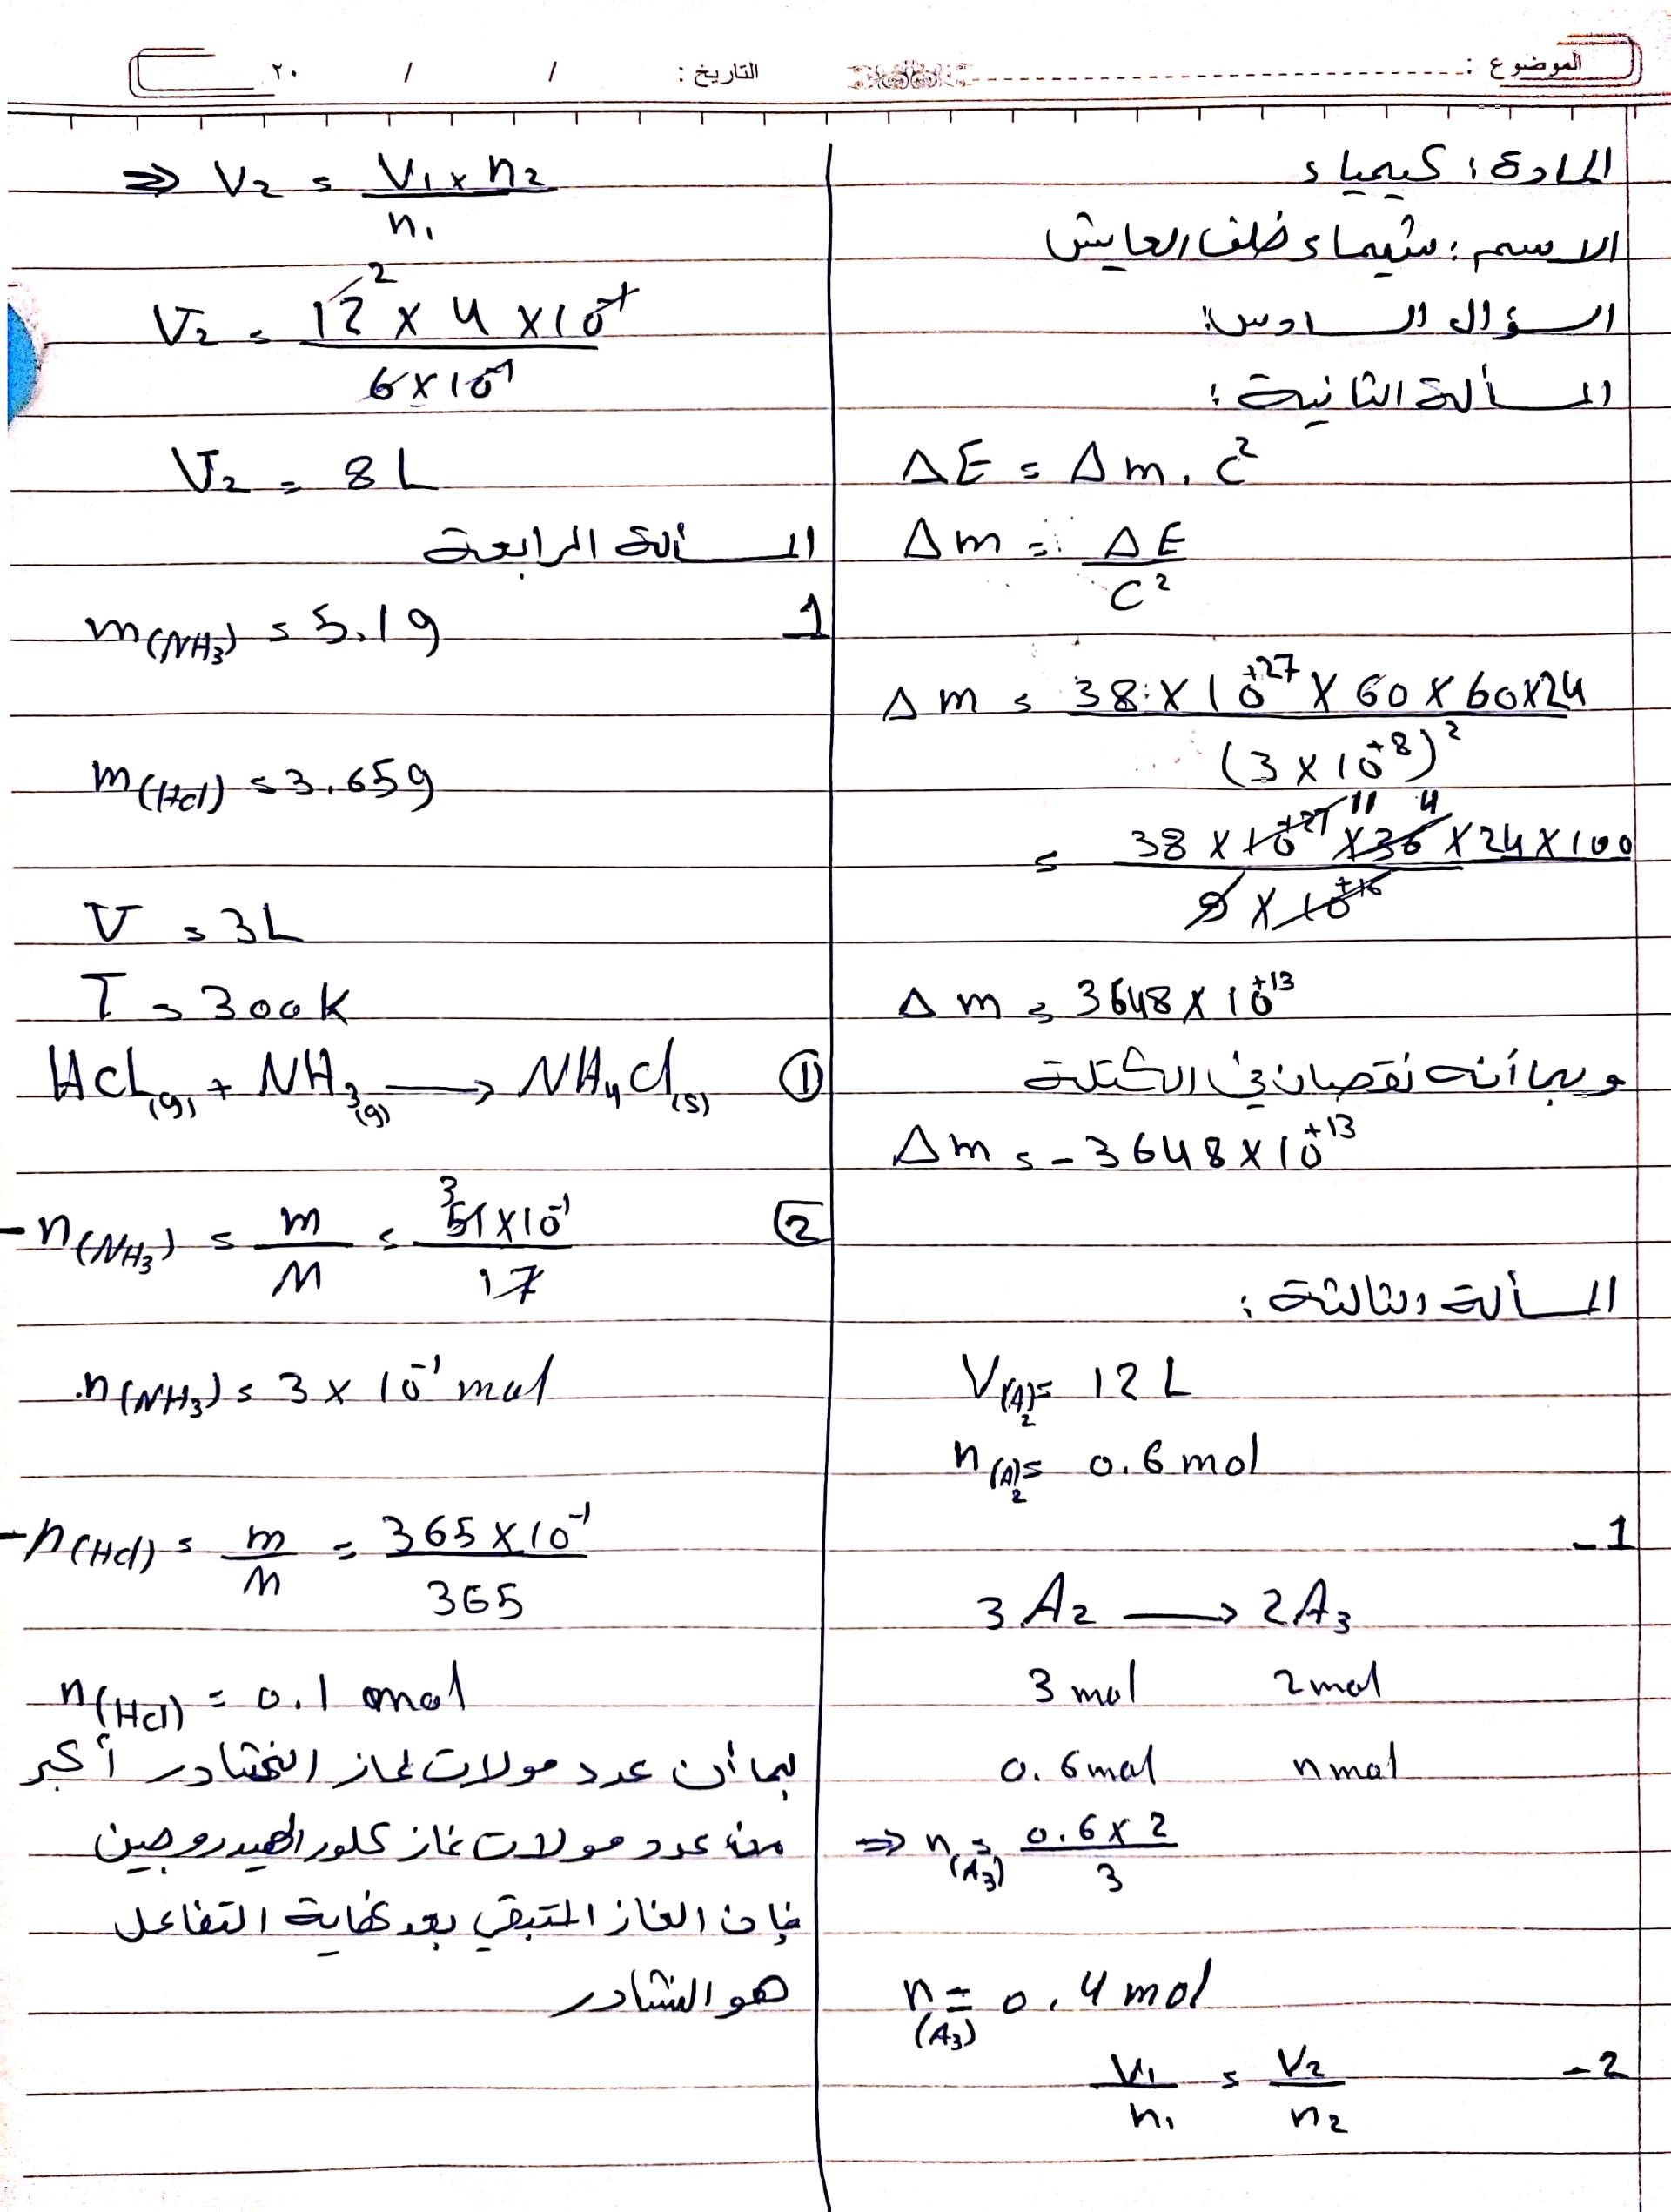 الموضوع :
التاريخ : / / ٢٠
المادة : كيمياء
الاسم : شيماء خلف العايش
السؤال السادس :
المسألة الثانية :
ΔE = Δm . C²
Δm = ΔE / C²
Δm = 38 × 10⁺²⁷ × 60 × 60 × 24 / (3 × 10⁺⁸)²
= 38 × 10⁺²⁷ ¹¹ × 36 ⁴ × 24 × 100 / 9 × 10⁺¹⁶
Δm = 3648 × 10⁺¹³
وبما أنه نقصان في الكتلة
Δm = - 3648 × 10⁺¹³
المسألة الثالثة :
V(A₂) = 12 L
n(A₂) = 0.6 mol
1 -
3 A₂ → 2A₃
3 mol 2 mol
0.6 mol n mol
⇒ n(A₃) = 0.6 × 2 / 3
n(A₃) = 0.4 mol
2 - V₁ / n₁ = V₂ / n₂
⇒ V₂ = V₁ × n₂ / n₁
V₂ = 12 ² × 4 × 10⁻¹ / 6 × 10⁻¹
V₂ = 8 L
المسألة الرابعة
1 m(NH₃) = 5.1 g
m(HCl) = 3.65 g
V = 3 L
T = 300 K
① HCl(g) + NH₃(g) → NH₄Cl(s)
② - n(NH₃) = m / M = 51 ³ × 10⁻¹ / 17
n(NH₃) = 3 × 10⁻¹ mol
- n(HCl) = m / M = 365 × 10⁻¹ / 365
n(HCl) = 0.1 mol
بما أن عدد مولات غاز النشادر أكبر
من عدد مولات غاز كلور الهيدروجين
فإن الغاز المتبقي بعد نهاية التفاعل
هو النشادر